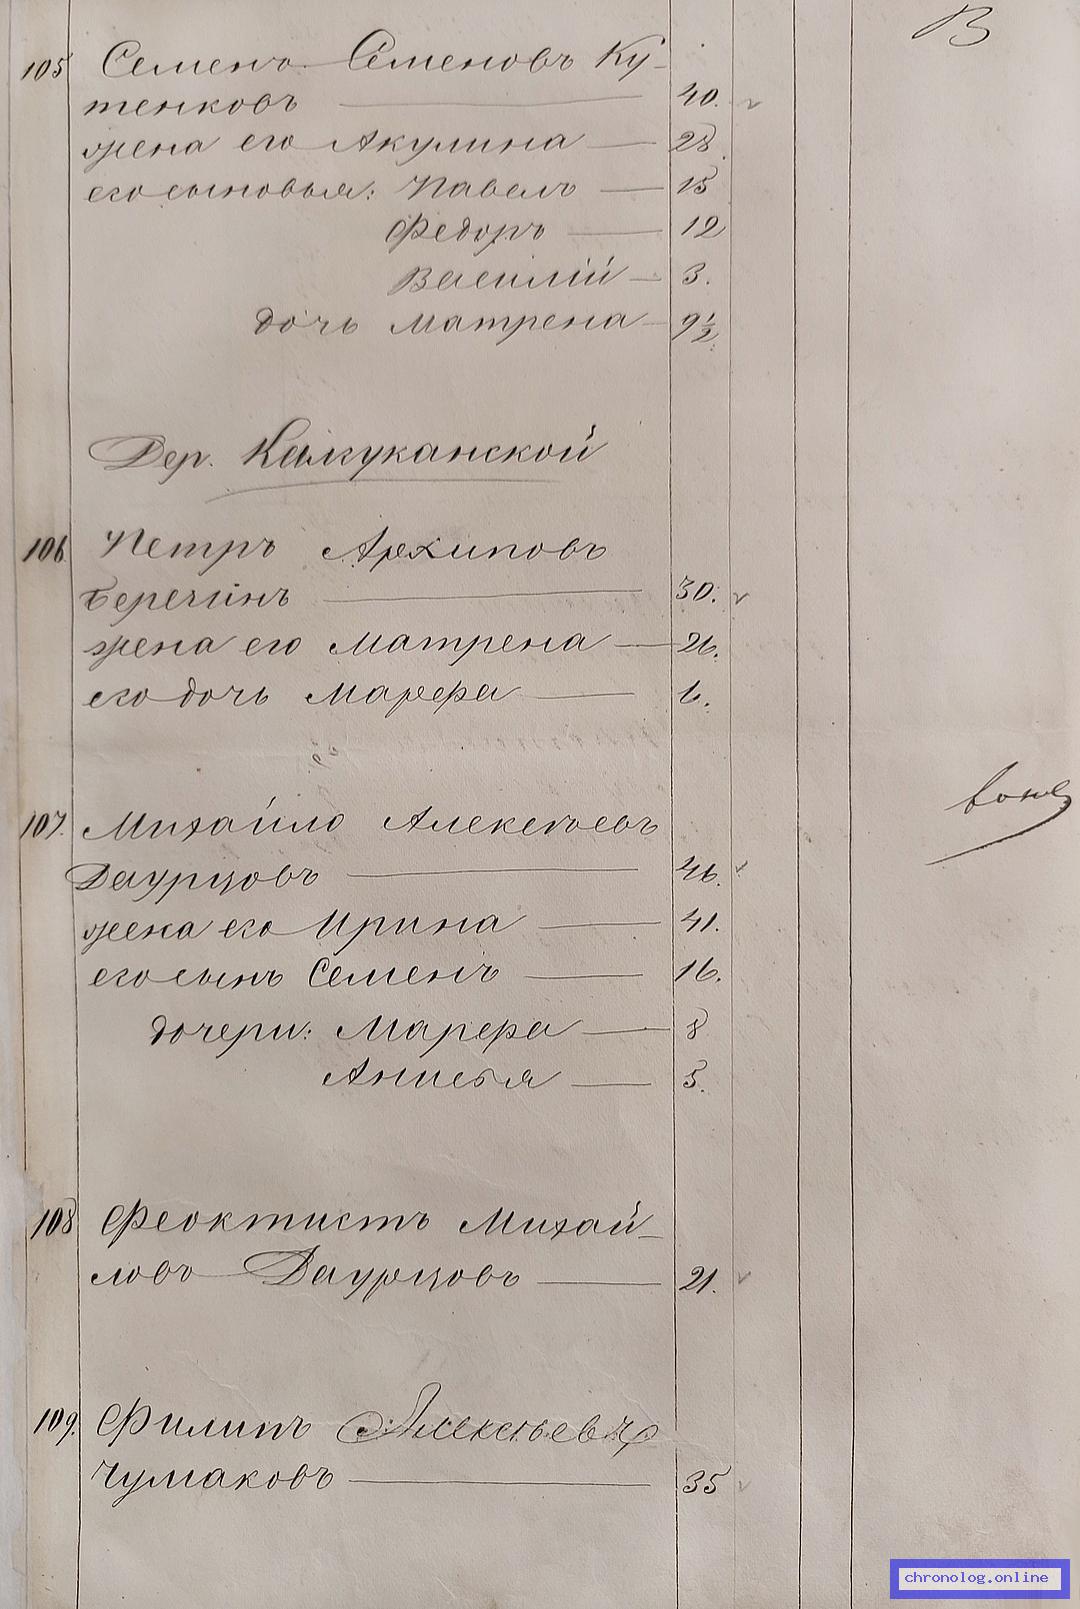 В
105 Семенъ Семеновъ Ку-
тенковъ — 40.
жена его Акулина — 28.
его сыновья: Павелъ — 15
Федоръ — 12
Василій — 3.
дочь Матрена — 9½
Дер. Калгуканской
106 Петръ Архиповъ
Беречінъ — 30.
жена его Матрена — 26.
его дочь Марфа — 6.
107. Михайло Алексѣевъ
Даурцовъ — 46.
жена его Ирина — 41.
его сынъ Семенъ — 16.
дочери: Марфа — 8
Анисья — 5.
108 Феоктистъ Михай-
ловъ Даурцовъ — 21.
109. Филипъ Алексѣевъ
Чумаковъ — 35
chronolog.online